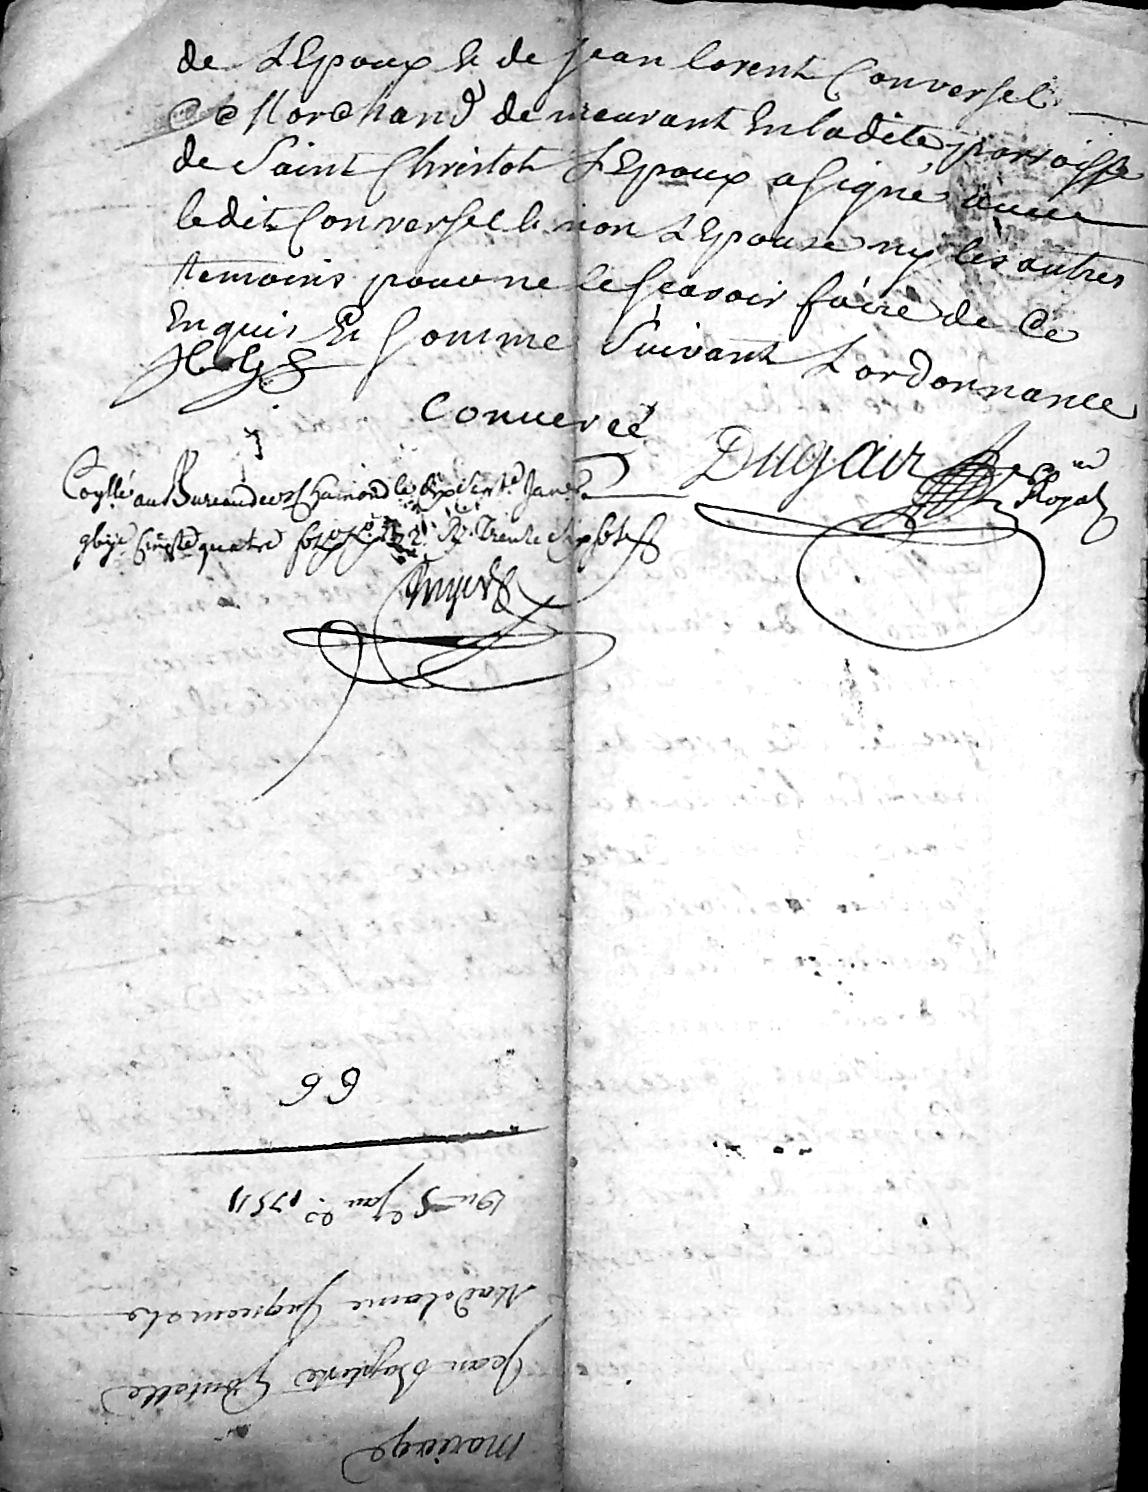 de LEpoux & de Jean lorent Conversel
Marchand demeurant En ladite parroisse
de Saint Christot LEpoux a signé avec
ledit Conversel & non LEpouse ny les autres
temoins pour ne le sçavoir faire de ce
Enquis Et somme Suivant Lordonnance
Converce
Dugair Royal
au Bureau de St Chamond le
quatre Trente six sols
99
Du 8 Janv 1751
Madelaine
Jean Baptiste
Mariage